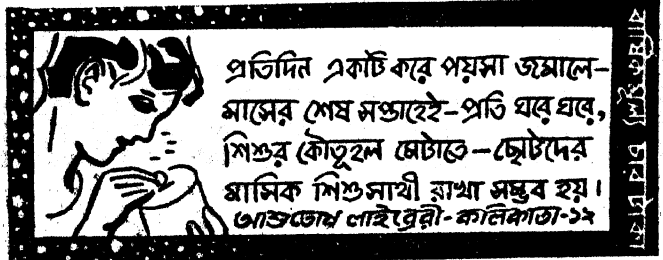 প্রতিদিন একটি করে পয়সা জমালে–
মাসের শেষ সপ্তাহেই–প্রতি ঘরে ঘরে,
শিশুর কৌতূহল মেটাতে–ছোটদের
মাসিক শিশুসাথী রাখা সম্ভব হয়।
আশুতোষ লাইব্রেরী–কলিকাতা–১২
বার্ষিক মূল্য চার টাকা